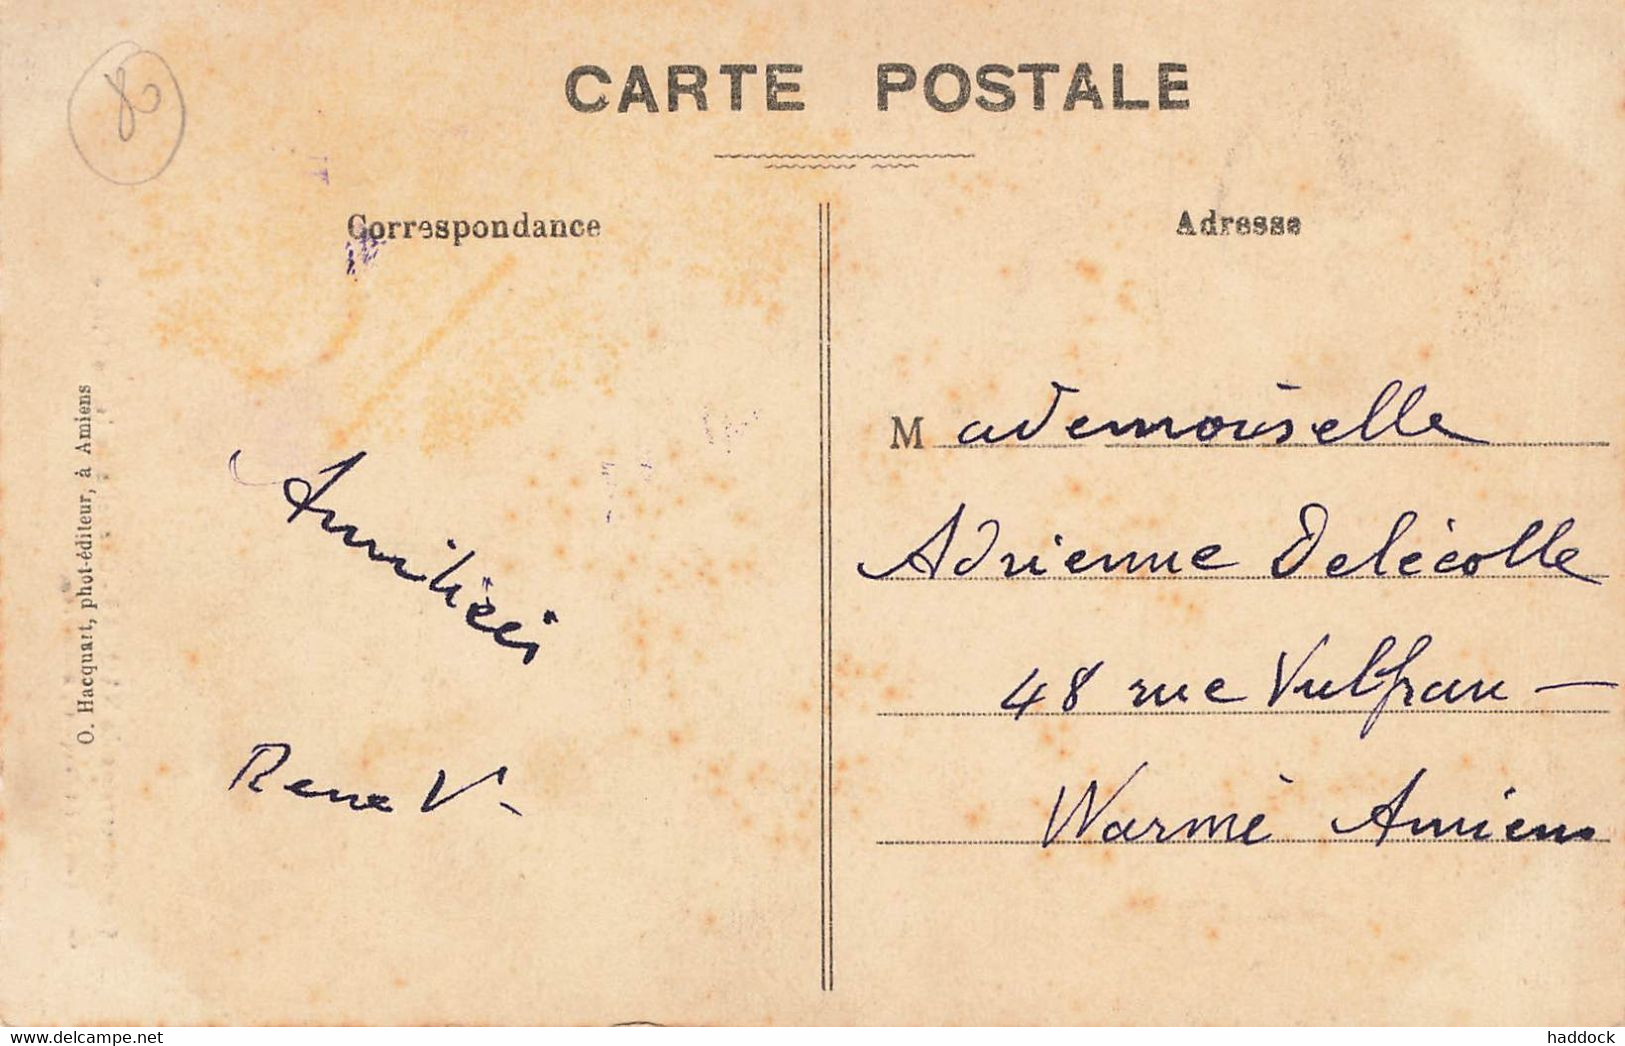 CARTE POSTALE
Correspondance
Adresse
O. Hacquart, phot-éditeur, à Amiens
80
Amitiés
René V-
Mademoiselle
Adrienne Delécolle
48 rue Vulfran -
Warmé Amiens
www.delcampe.net
haddock